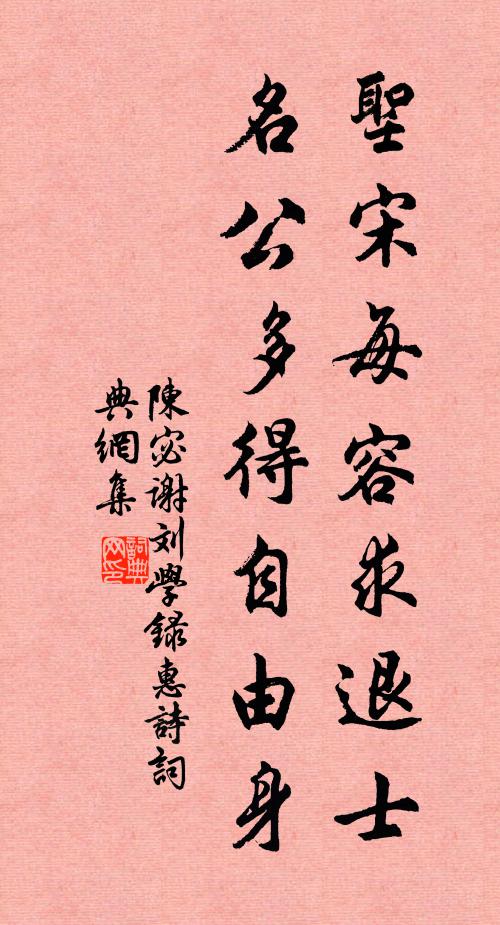 聖宋每容求退士
名公多得自由身
陳宓谢刘學録惠詩詞
典網集
詞典
网印